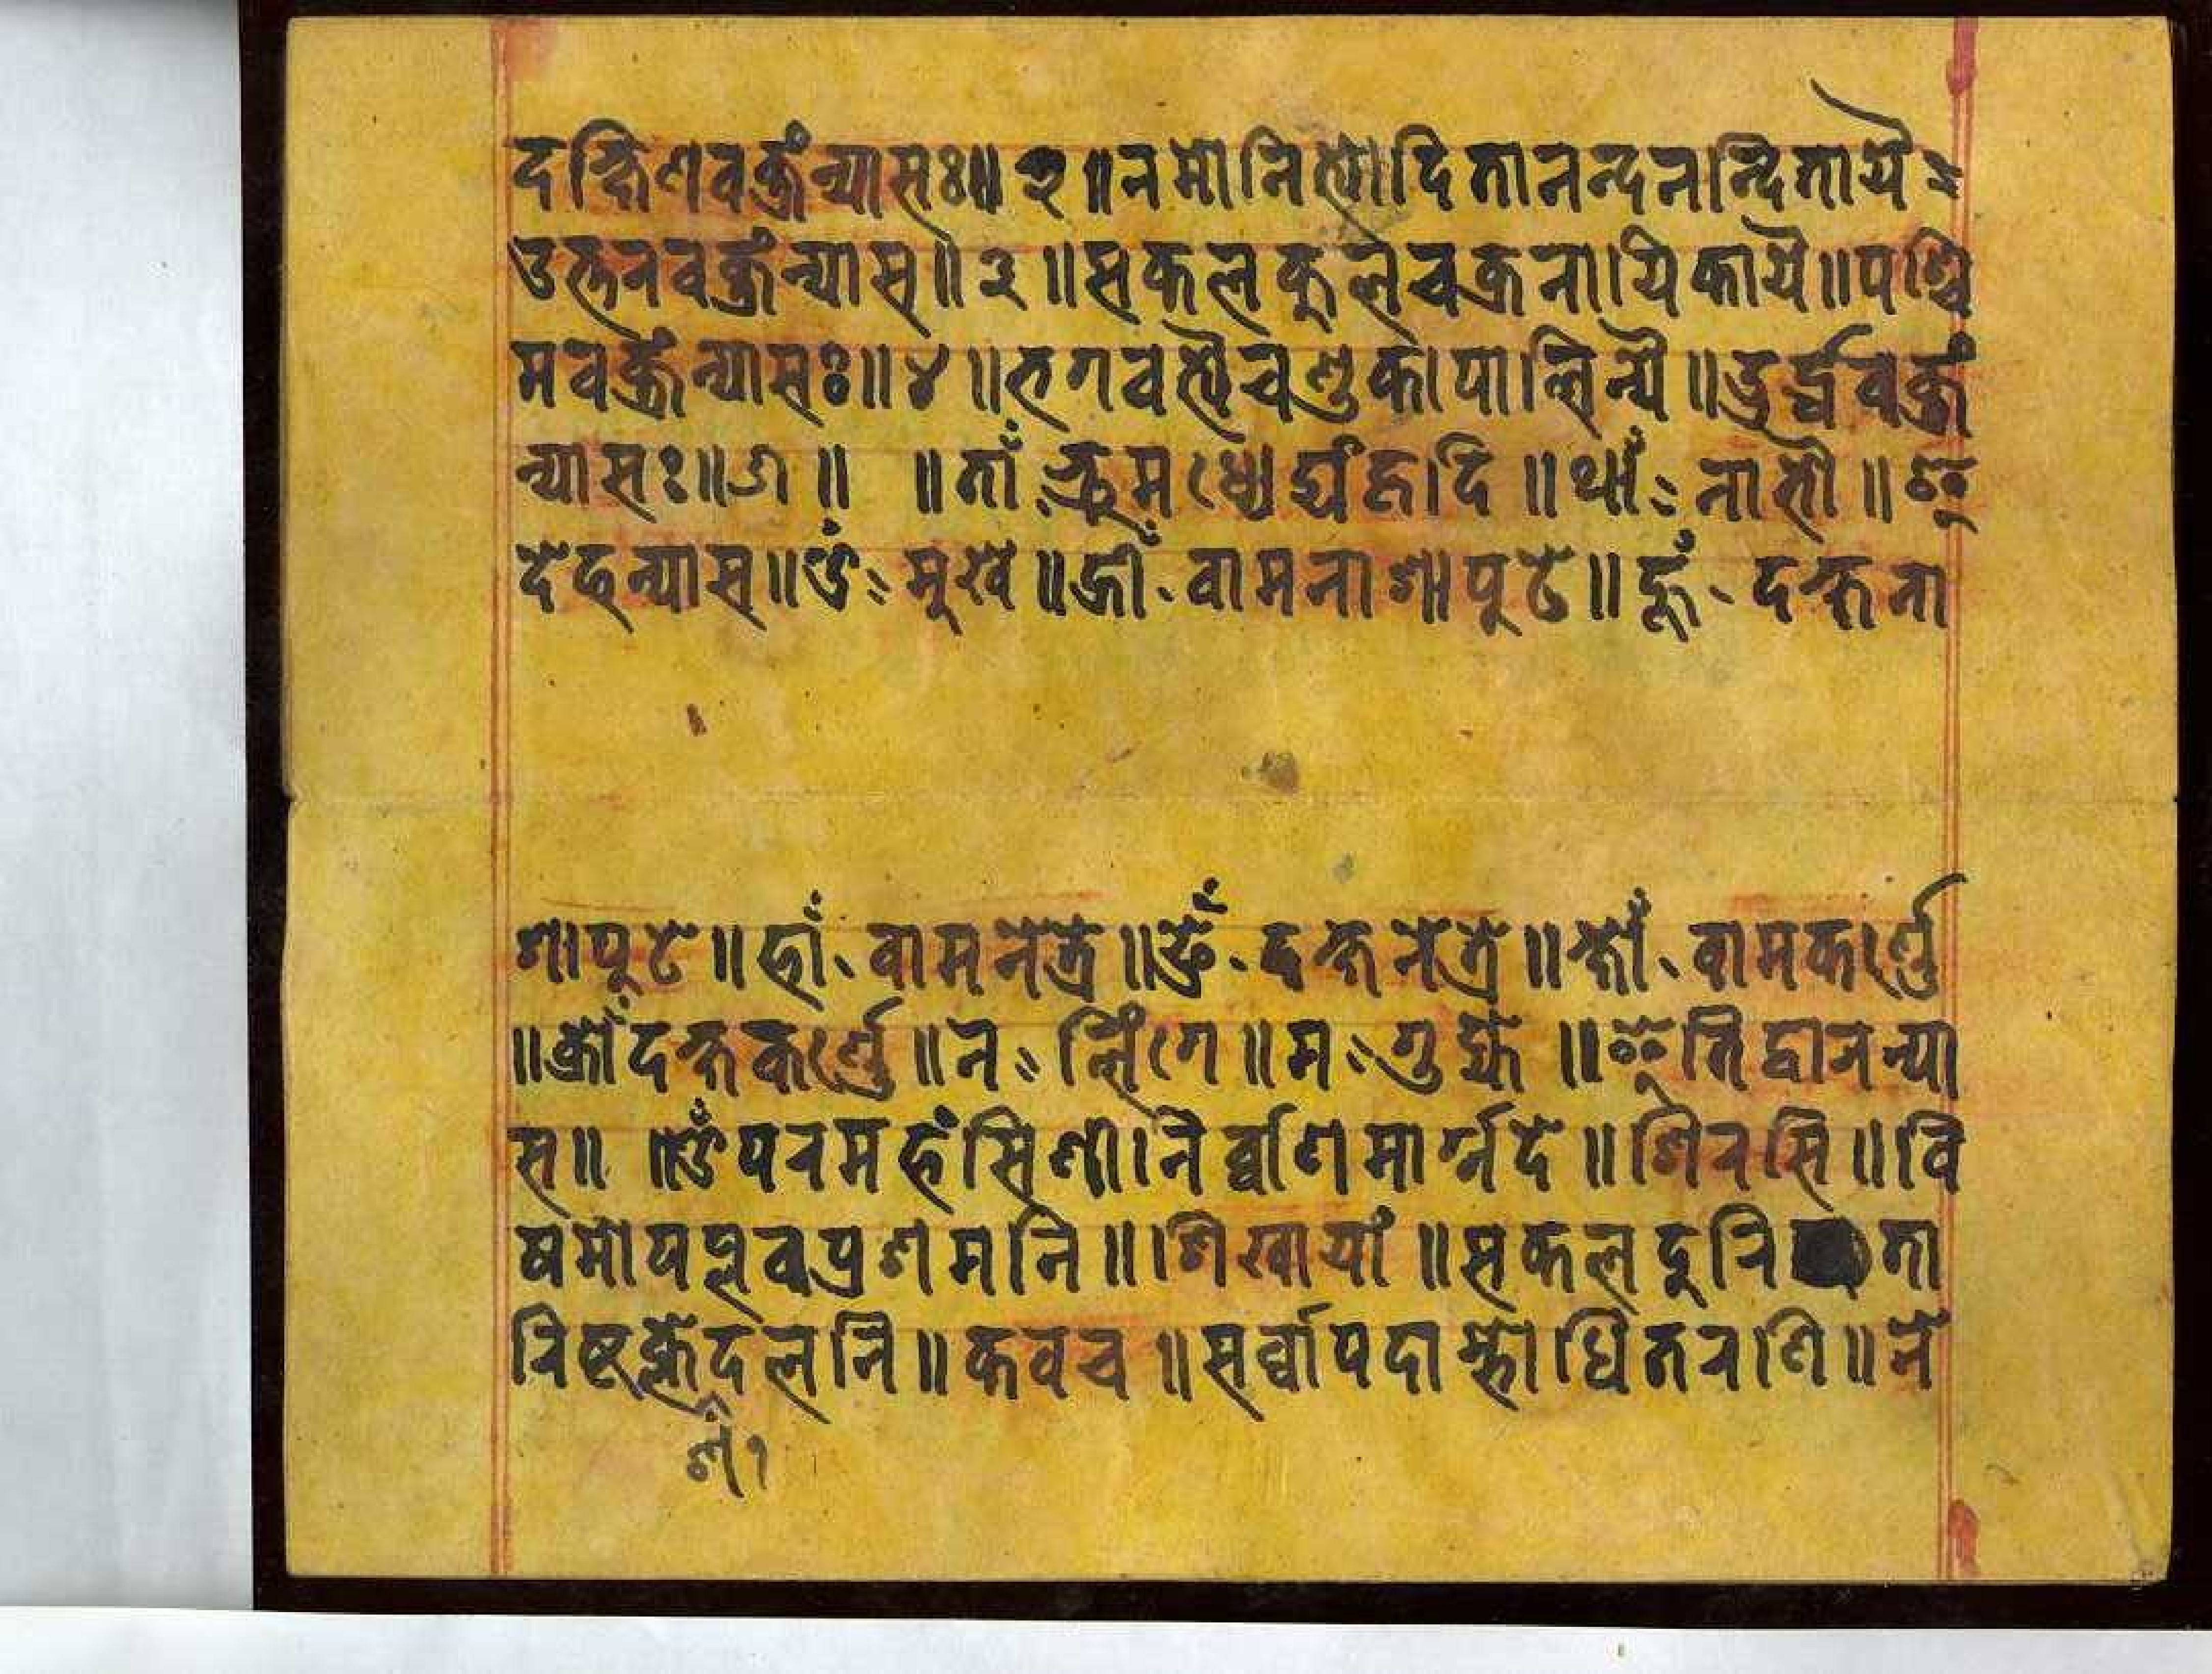 दक्षिणवक्त्रंन्यासः॥२॥नमोनित्योदितानन्दनन्दितायै
उत्तनवक्त्रंन्यास॥३॥सकलकुलचक्रनायिकायै॥पश्चि
मवक्त्रंन्यासः॥४॥भगवत्यैचण्डकापालिन्यै॥उर्द्धवक्त्रं
न्यासः॥५॥ ॥ताँ हृदि॥थाँः नाभौ॥
देहन्यास॥ मूखे॥ वामनाशापूटे॥ह्रूं दक्षना
शापूटे॥हाँ वामनेत्रे॥ दक्षनेत्रे॥क्षाँ वामकर्ण्णे
॥क्रोँदक्षकर्ण्णे॥नः लिंगे॥मः गुह्ये॥ तिद्वानन्या
स॥ ॥ॐपरमहंसिणीनिर्व्वाणमार्ग्गदे॥शिरसि॥वि
षमोपप्लवप्रशमनि॥शिखायां॥सकलदुरिता
रिष्टक्लेदलनि॥कवच॥सर्व्वापदाम्भोधितरणि॥ने
शं१